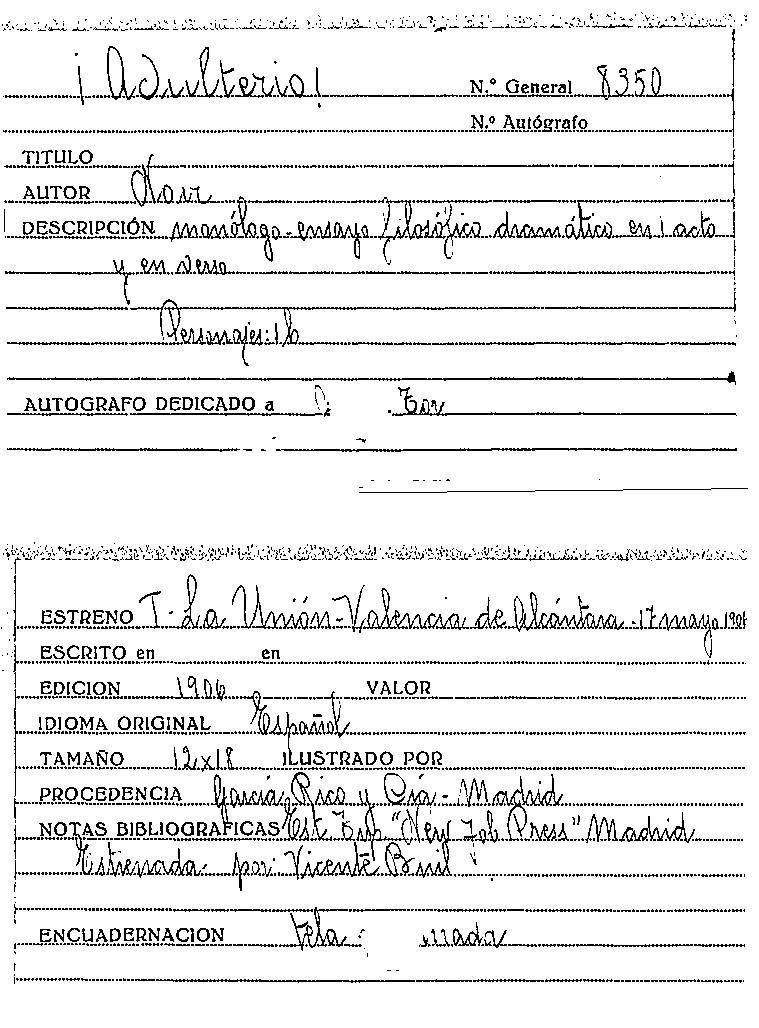 ¡Adulterio!
N.º General 8350
N.º Autógrafo
TITULO
AUTOR
DESCRIPCIÓN monólogo-ensayo filosófico dramático en 1 acto
y en verso
Personajes: 1 h
AUTOGRAFO DEDICADO a
ESTRENO T. La Unión-Valencia de Alcántara - 17 mayo 1906
ESCRITO en en
EDICION 1906 VALOR
IDIOMA ORIGINAL Español
TAMAÑO 12x18 ILUSTRADO POR
PROCEDENCIA García Rico y Cía - Madrid
NOTAS BIBLIOGRAFICAS Est. Tip. "New Job Press" Madrid
Estrenada por: Vicente Buil
ENCUADERNACION tela